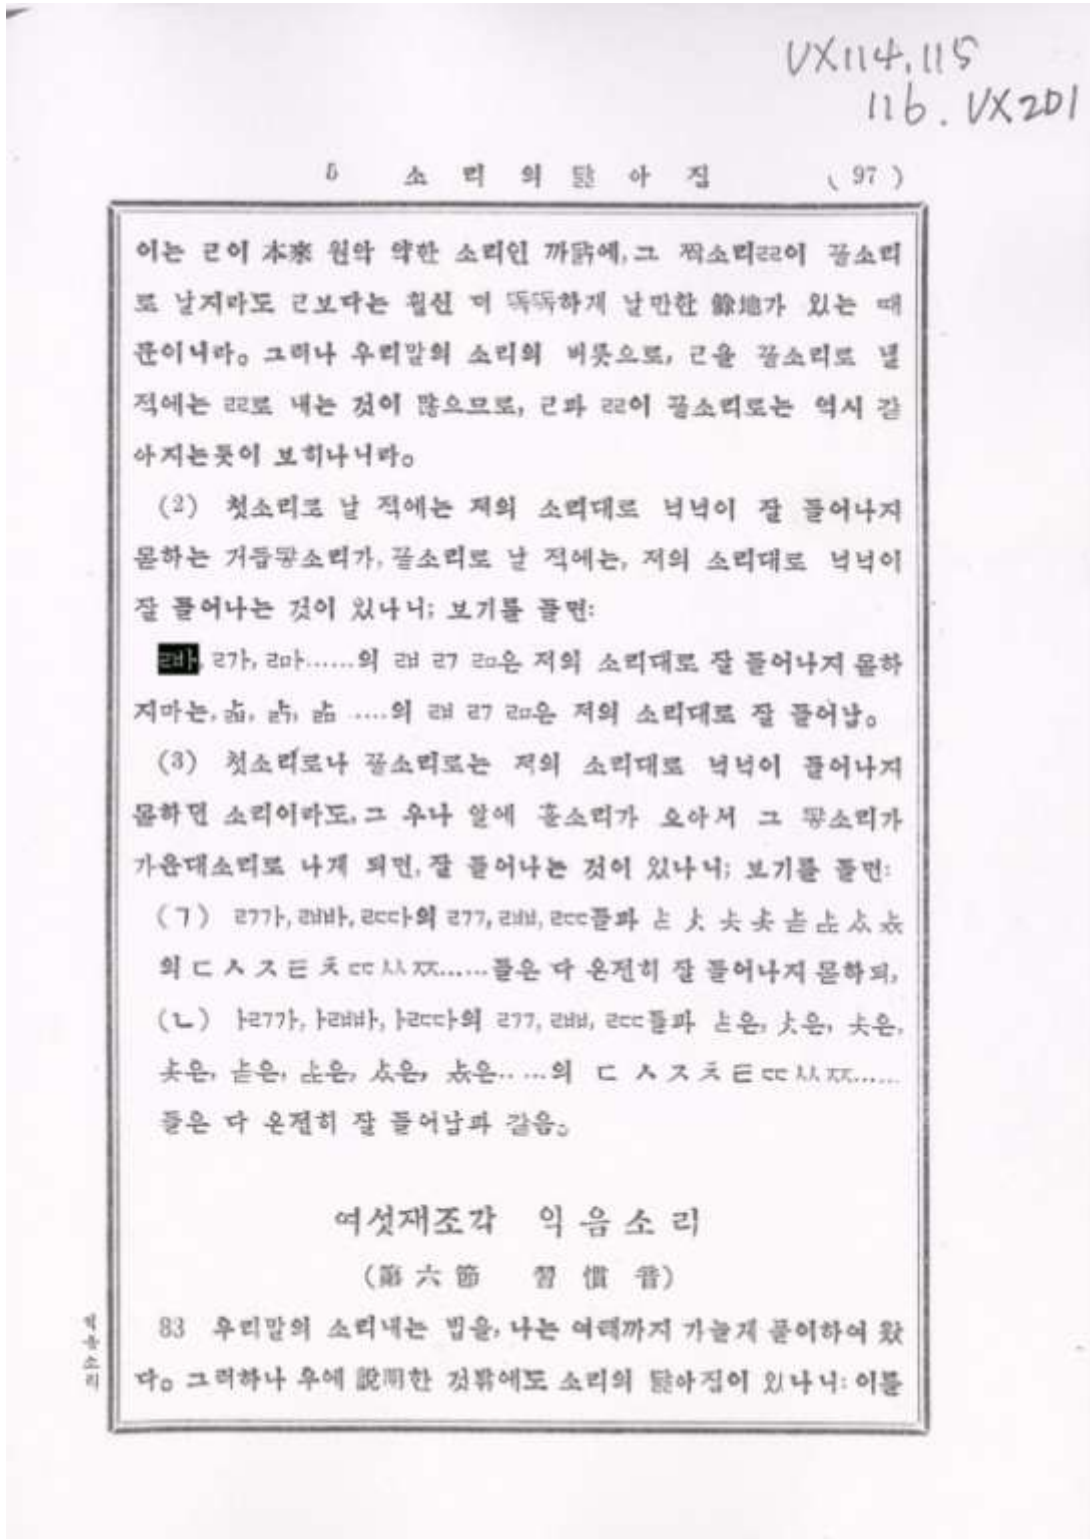 UX114.115
116. UX201
5 소리의닮아짐 (97)
이는 ㄹ이 本來 원악 약한 소리인 까닭에, 그 짝소리ㄹㄹ이 끝소리
로 날지라도 ㄹ보다는 훨신 더 똑똑하게 날만한 餘地가 있는 때
문이니라。 그러나 우리말의 소리의 버릇으로, ㄹ을 끝소리로 낼
적에는 ㄹㄹ로 내는 것이 많으므로, ㄹ과 ㄹㄹ이 끝소리로는 역시 같
아지는듯이 보히나니라。
(2) 첫소리로 날 적에는 저의 소리대로 넉넉이 잘 들어나지
몯하는 거듭닿소리가, 끝소리로 날 적에는, 저의 소리대로 넉넉이
잘 들어나는 것이 있나니; 보기를 들면:
ㄼㅏ, ㄺㅏ, ㄻㅏ……의 ㄼ ㄺ ㄻ은 저의 소리대로 잘 들어나지 몯하
지마는, ㅏㄼ, ㅏㄺ, ㅏㄻ ……의 ㄼ ㄺ ㄻ은 저의 소리대로 잘 들어남。
(3) 첫소리로나 끝소리로는 저의 소리대로 넉넉이 들어나지
몯하던 소리이라도, 그 우나 알에 홀소리가 오아서 그 닿소리가
가운대소리로 나게 되면, 잘 들어나는 것이 있나니; 보기를 들면:
(ㄱ) ㄹㄱㄱㅏ, ㄹㅂㅂㅏ, ㄹㄷㄷㅏ의 ㄹㄱㄱ, ㄹㅂㅂ, ㄹㄷㄷ들과 ㅏㄷ ㅏㅅ ㅏㅈ ㅏㅊ ㅏㅌ ㅏㄸ ㅏㅆ ㅏㅉ
의 ㄷ ㅅ ㅈ ㅌ ㅊ ㄸ ㅆ ㅉ……들은 다 온전히 잘 들어나지 몯하되,
(ㄴ) ㅏㄹㄱㄱㅏ, ㅏㄹㅂㅂㅏ, ㅏㄹㄷㄷㅏ의 ㄹㄱㄱ, ㄹㅂㅂ, ㄹㄷㄷ들과 ㅏㄷ은, ㅏㅅ은, ㅏㅈ은,
ㅏㅊ은, ㅏㅌ은, ㅏㄸ은, ㅏㅆ은, ㅏㅉ은……의 ㄷ ㅅ ㅈ ㅊ ㅌ ㄸ ㅆ ㅉ……
들은 다 온전히 잘 들어남과 같음。
여섯재조각 익음소리
(第六節 習慣音)
83 우리말의 소리내는 법을, 나는 여태까지 가늘게 풀이하여 왔
다。 그러하나 우에 說明한 것밖에도 소리의 닮아짐이 있나니: 이를
익음소리